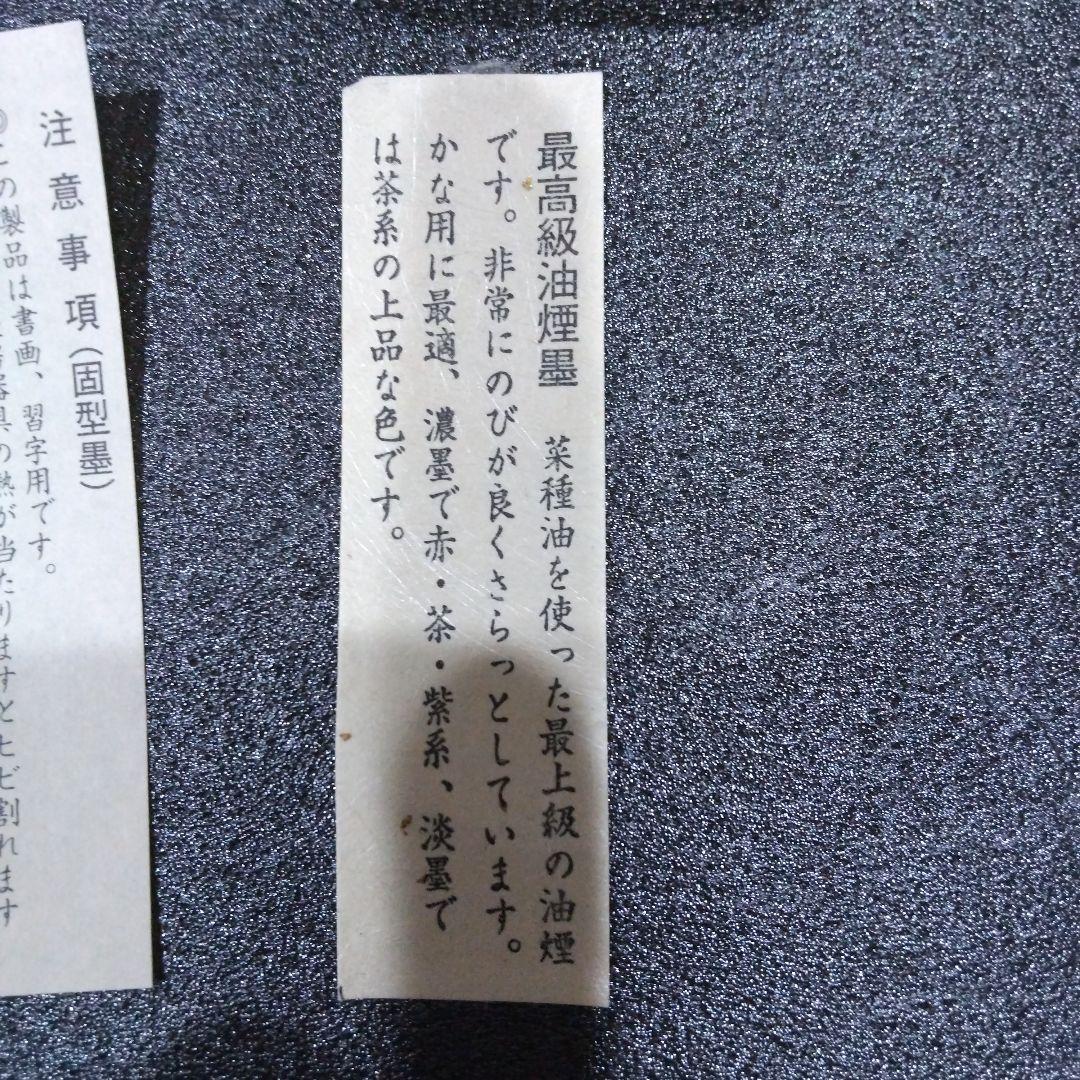 最高級油煙墨　菜種油を使った最上級の油煙
です。非常にのびが良くさらっとしています。
かな用に最適、濃墨で赤・茶・紫系、淡墨で
は茶系の上品な色です。
注意事項(固型墨)
◎この製品は書画、習字用です。
器具の熱が当たりますとヒビ割れます